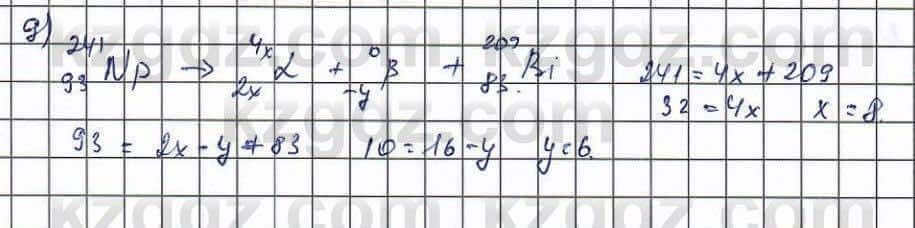 g) ²⁴¹₉₃Np → ⁴ˣ₂ₓα + ⁰₋yβ + ²⁰⁹₈₃Bi 241 = 4x + 209
32 = 4x x = 8.
93 = 2x - y + 83 10 = 16 - y y = 6.
kzgdz.com